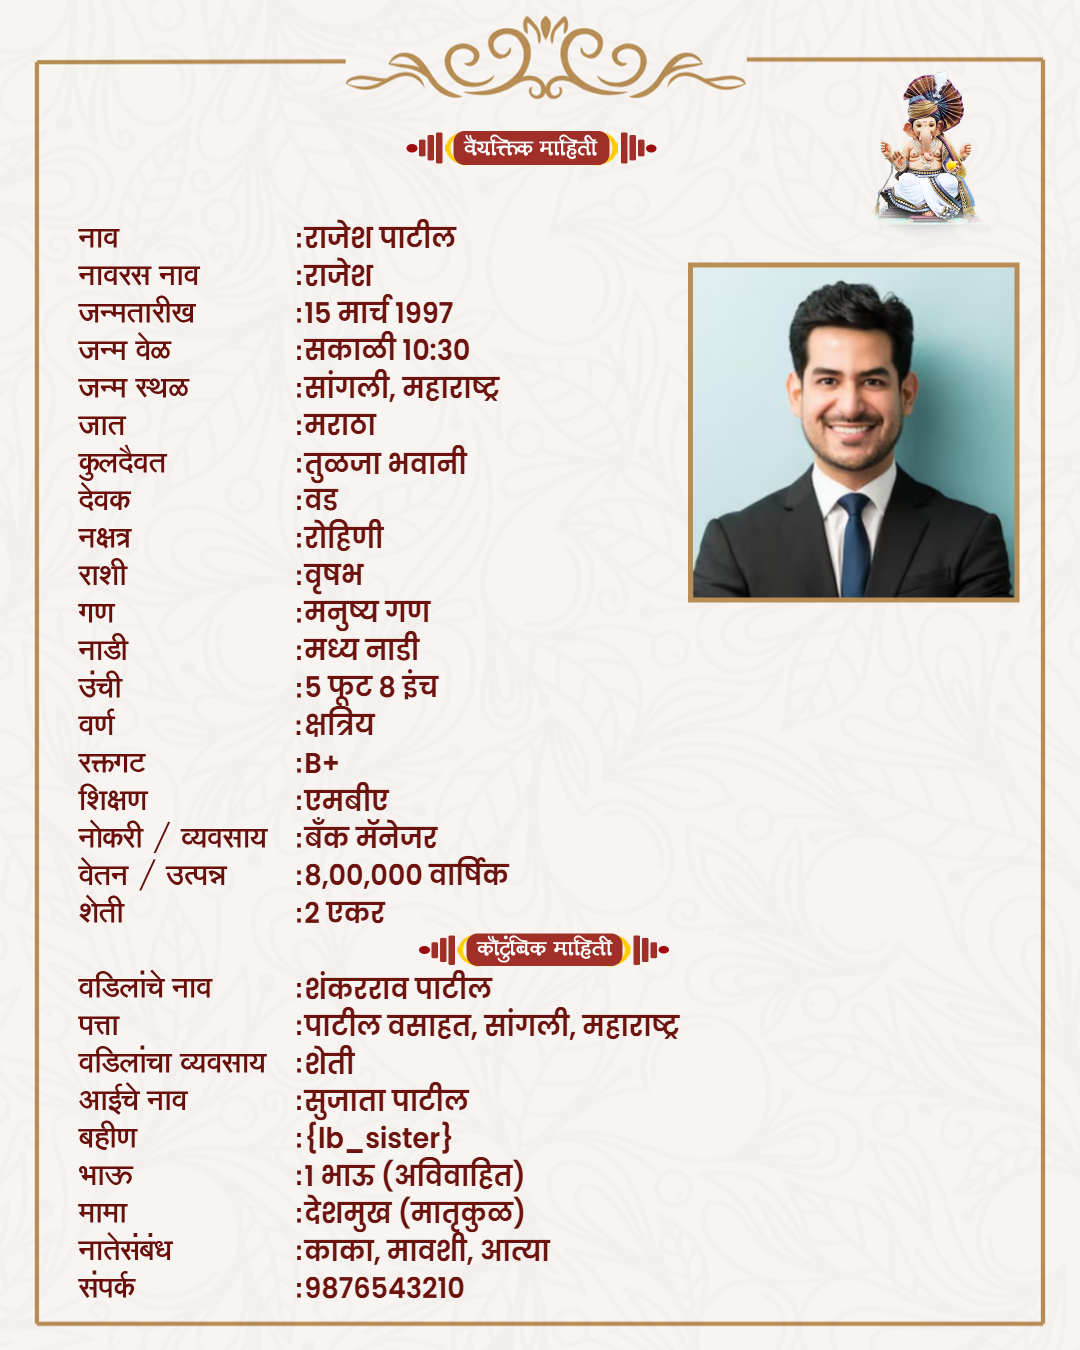 वैयक्तिक माहिती
नाव :राजेश पाटील
नावरस नाव :राजेश
जन्मतारीख :15 मार्च 1997
जन्म वेळ :सकाळी 10:30
जन्म स्थळ :सांगली, महाराष्ट्र
जात :मराठा
कुलदैवत :तुळजा भवानी
देवक :वड
नक्षत्र :रोहिणी
राशी :वृषभ
गण :मनुष्य गण
नाडी :मध्य नाडी
उंची :5 फूट 8 इंच
वर्ण :क्षत्रिय
रक्तगट :B+
शिक्षण :एमबीए
नोकरी / व्यवसाय :बँक मॅनेजर
वेतन / उत्पन्न :8,00,000 वार्षिक
शेती :2 एकर
कौटुंबिक माहिती
वडिलांचे नाव :शंकरराव पाटील
पत्ता :पाटील वसाहत, सांगली, महाराष्ट्र
वडिलांचा व्यवसाय :शेती
आईचे नाव :सुजाता पाटील
बहीण :{lb_sister}
भाऊ :1 भाऊ (अविवाहित)
मामा :देशमुख (मातृकुळ)
नातेसंबंध :काका, मावशी, आत्या
संपर्क :9876543210